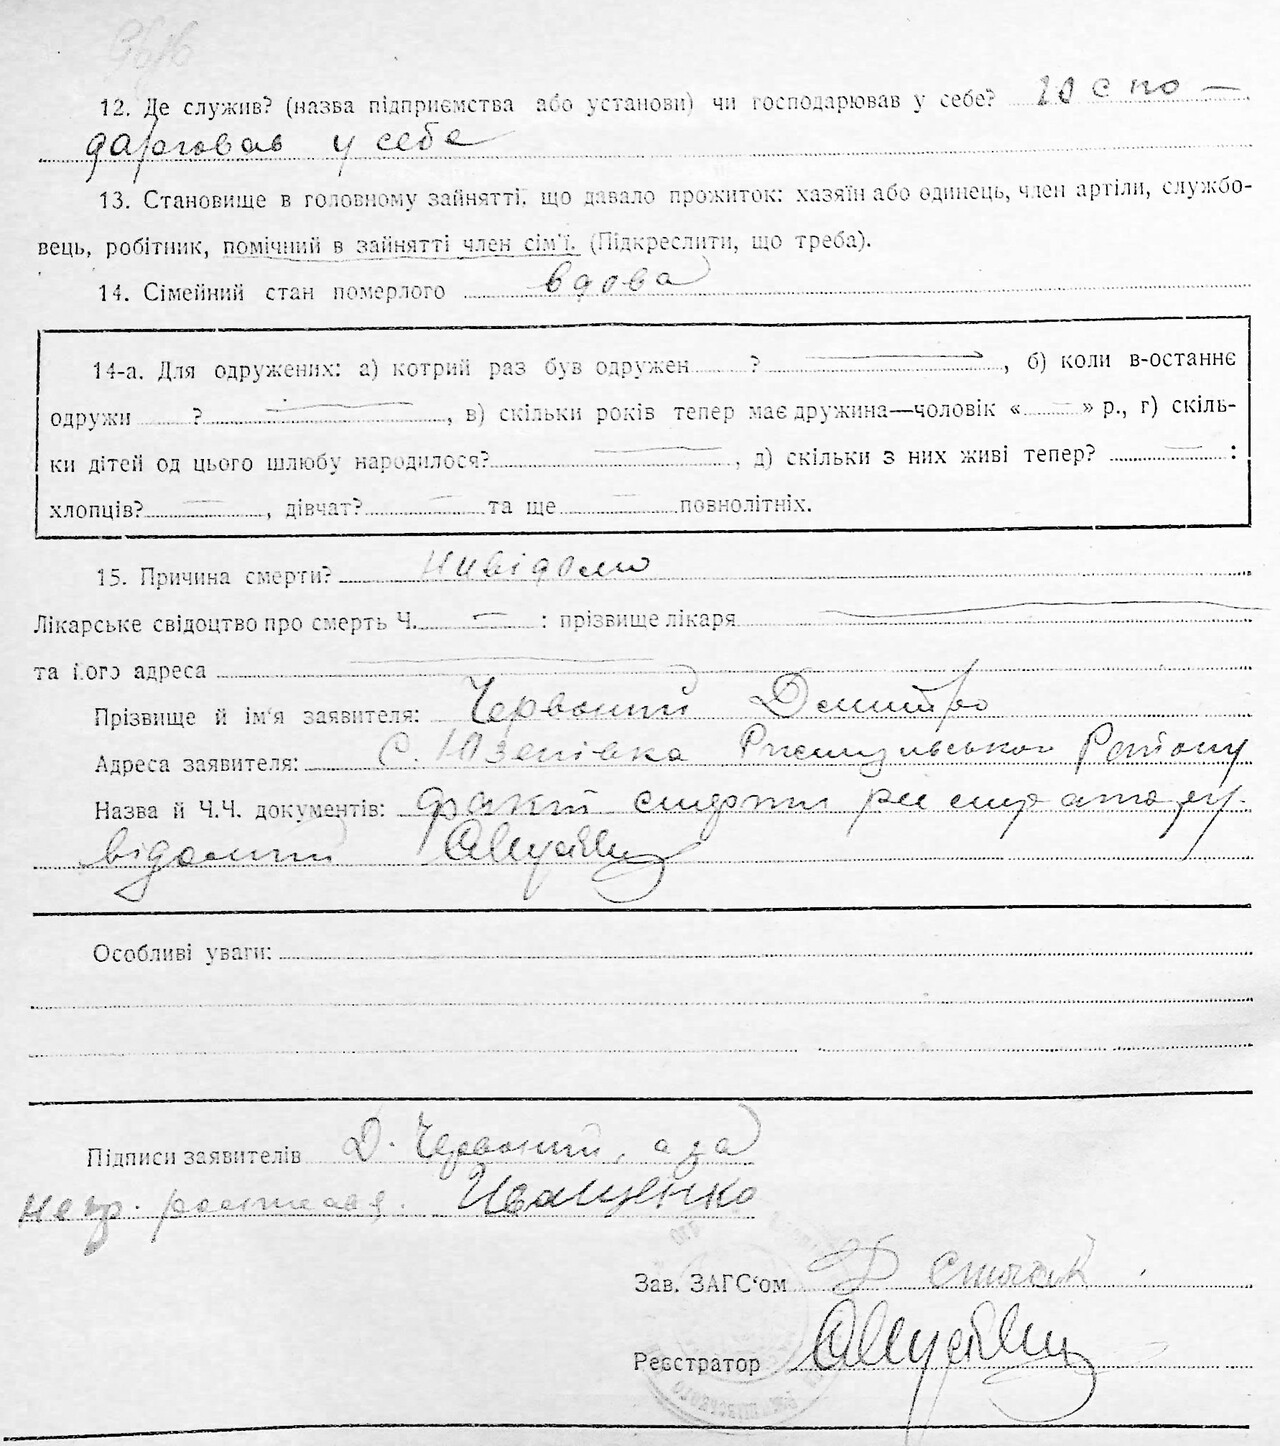 12. Де служив? (назва підприємства або установи) чи господарював у себе? Госпо-
дарював у себе
13. Становище в головному зайнятті, що давало прожиток: хазяїн або одинець, член артіли, службо-
вець, робітник, помічний в зайнятті член сім'ї. (Підкреслити, що треба).
14. Сімейний стан померлого вдова
14-а. Для одружених: а) котрий раз був одружен ? —, б) коли в-останнє
одружи ? —, в) скільки років тепер має дружина—чоловік « — » р., г) скіль-
ки дітей од цього шлюбу народилося? —, д) скільки з них живі тепер? — :
хлопців? —, дівчат? — та ще — повнолітніх.
15. Причина смерти? Нивідомо
Лікарське свідоцтво про смерть Ч. — : прізвище лікаря —
та його адреса —
Прізвище й ім'я заявителя: Червоний Дмитро
Адреса заявителя: с. Юзепівка Району
Назва й Ч.Ч. документів: факт смерти
відомий
Особливі уваги:
Підписи заявителів Д. Червоний, а за
негр. Іващенко
Зав. ЗАГС'ом
Реєстратор